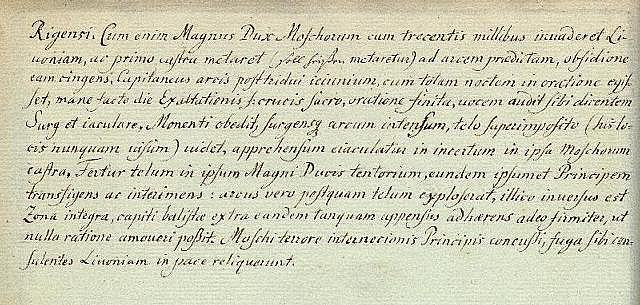 Rigensi. Cum enim Magnus Dux Moschorum cum trecentis millibus invaderet Li-
voniam, ac primo castra metaret (soll heißen, metaretur) ad arcem præditam, obsidione
eam cingens, Capitaneus arcis post tridui ieiunium, cum totam noctem in oratione egis-
set, mane facto die Exaltationis S. crucis sacro, oratione finita, vocem audit sibi dicentem
Surg et iaculare, Monenti obedit, surgensq arcum intensum, telo superimposito (his lo-
cis nunquam visum) videt, apprehensum eiaculatur in incertum in ipsa Moschorum
castra, Fertur telum in ipsum Magni Ducis tentorium, eundem ipsumet Principem
transfigens ac interimens: arcus vero postquam telum explosrat, illico inversus est
Zona integra, capiti balistæ extra eandem tanquam appensus adhærens adeo firmiter, ut
nulla ratione amoveri possit. Moschi terrore internecionis Principis concussi, fuga sibi con-
sulentes Livoniam in pace reliquerunt.